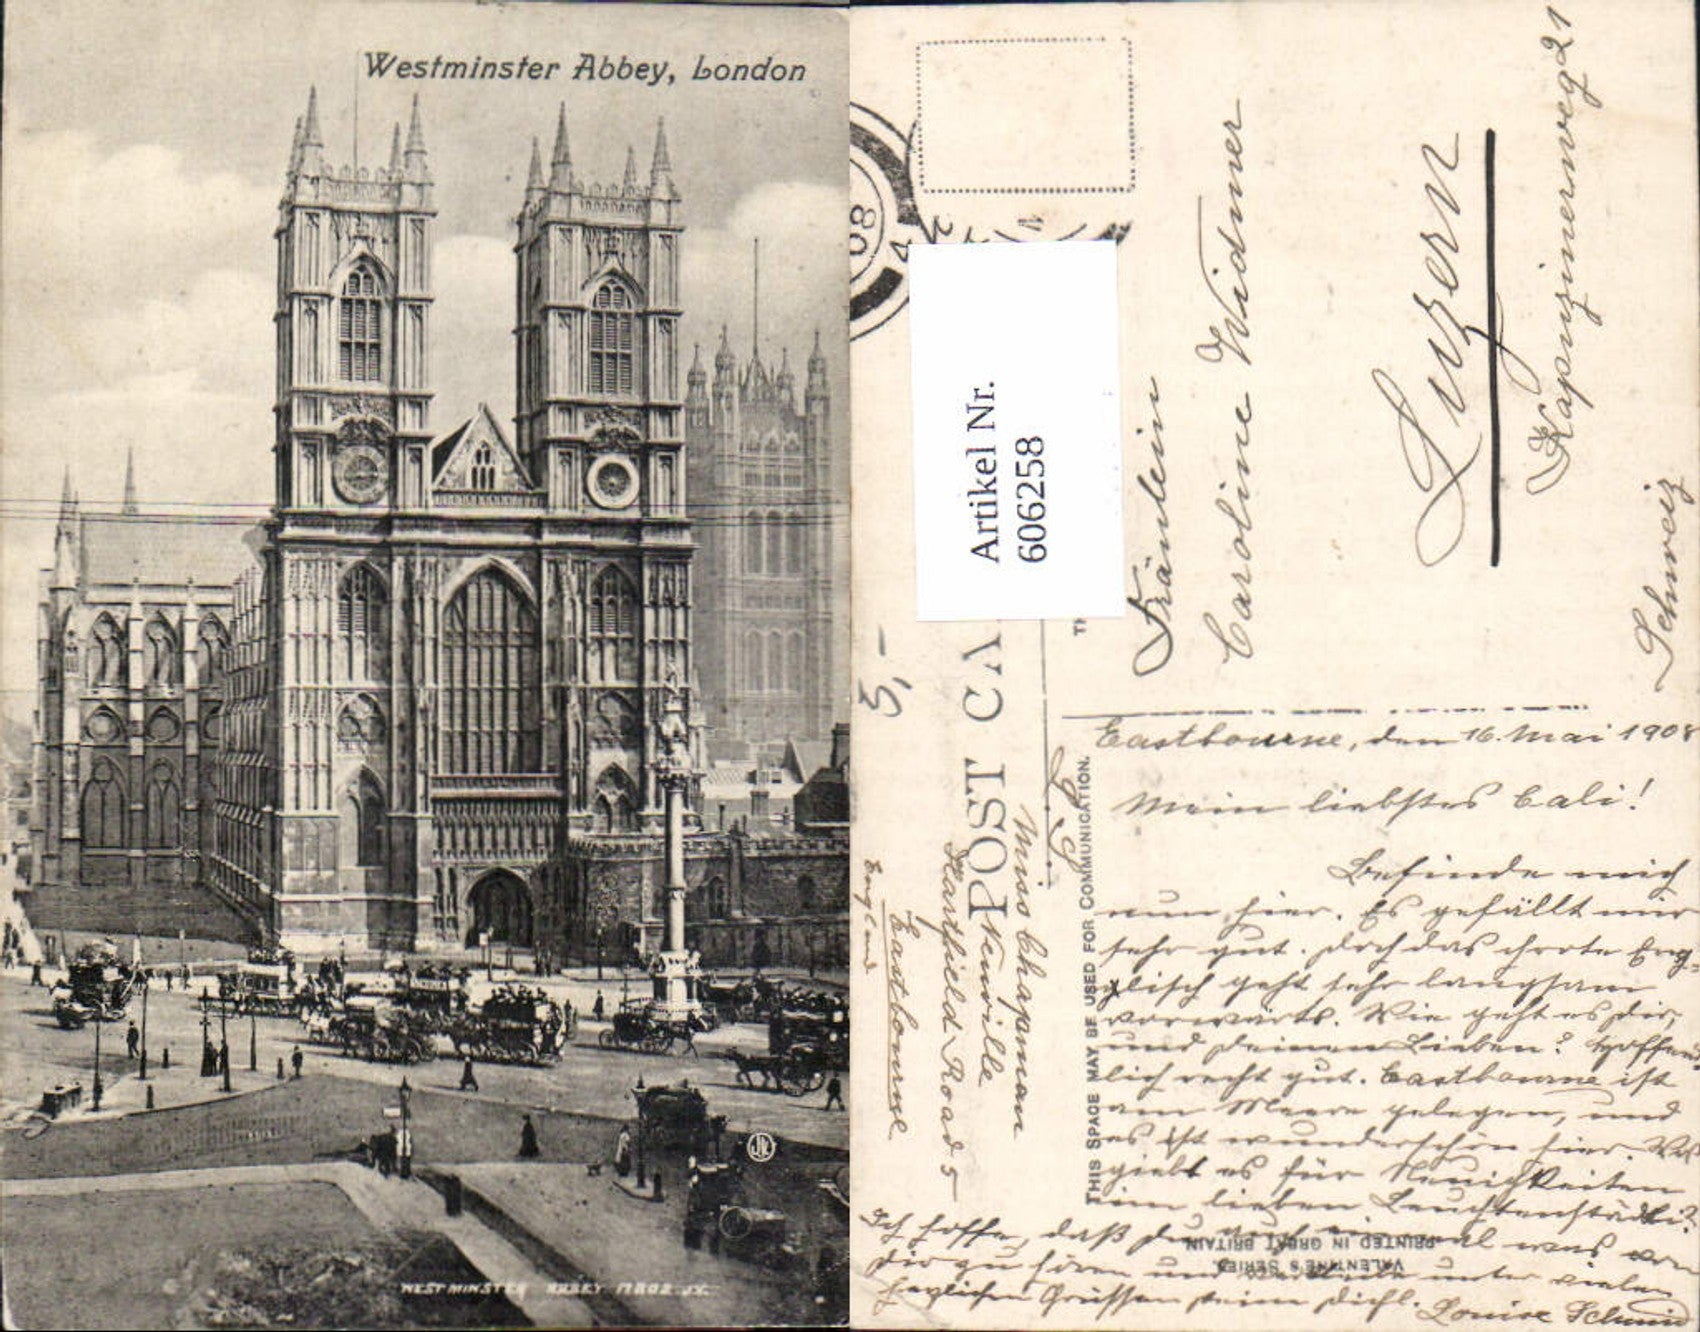 Westminster Abbey, London
WESTMINSTER ABBEY 17802 JV.
JV
08
Artikel Nr.
606258
5,-
POST CA
TH
THIS SPACE MAY BE USED FOR COMMUNICATION.
VALENTINE'S SERIES
PRINTED IN GREAT BRITAIN
Fräulein
Caroline Widmer
Luzern
Kapuzinerweg 21
Schweiz
Miss Chapman
Nenville
Hartfield Road 5
Eastbourne
England
Eastbourne, den 16. Mai 1908
Mein liebstes Cali!
Befinde mich
nun hier. Es gefällt mir
sehr gut. Doch das Eng-
lisch geht sehr langsam
vorwärts. Wie geht es Dir,
und Deinen Lieben? Hoffent-
lich recht gut. Eastbourne ist
am Meere gelegen, und
es ist wunderschön hier. Was
giebt es für Neuigkeiten
im lieben Leuchtenstädtli?
Ich hoffe, daß Du auch einmal was von
Dir zu hören und unter vielen
herzlichen Grüssen Deine Dichl.
Louise Schmid